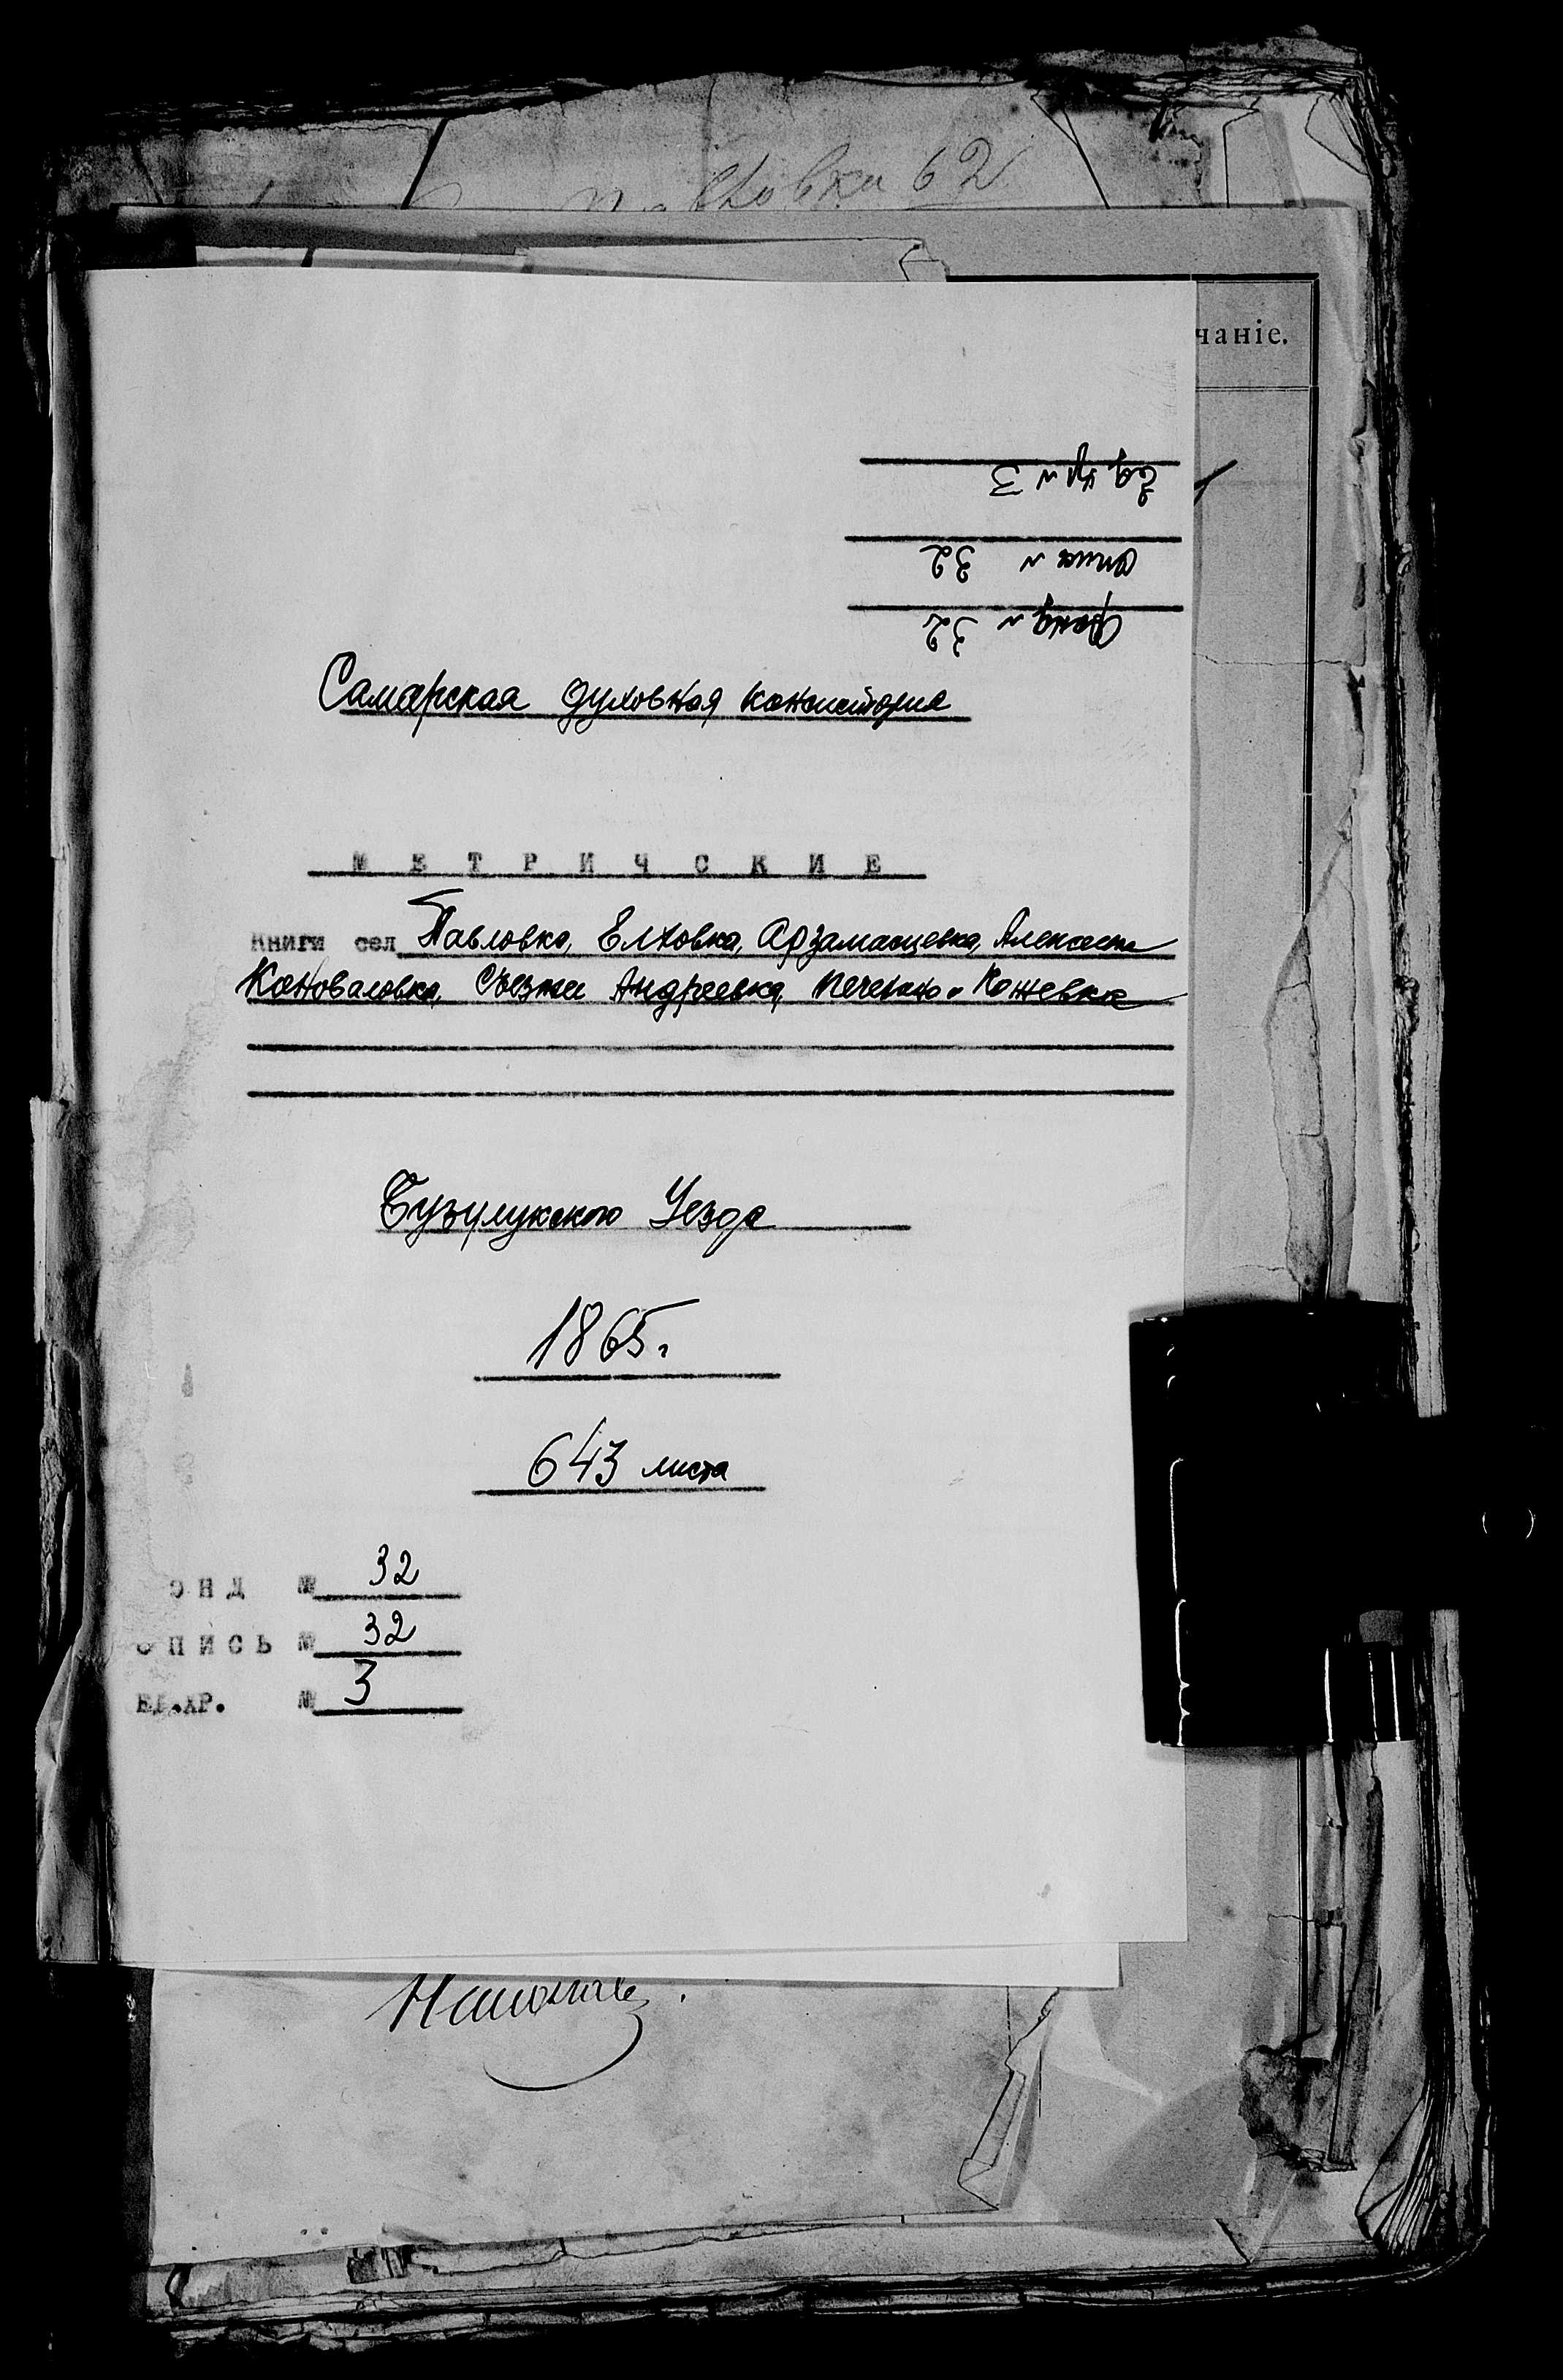 овка 62
чаніе.
Ед. хр № 3
опись № 32
Фонд № 32
Самарская духовная консистория
МЕТРИЧСКИЕ
книги сел Павловка, Елховка, Арзамасцевка, Алексеевка
Коноваловка, Съезжее Андреевка, Печенно-Кожевка
Бузулукского Уезда
1865г.
643 листа
ОНД № 32
ОПИСЬ № 32
ЕД.ХР. № 3